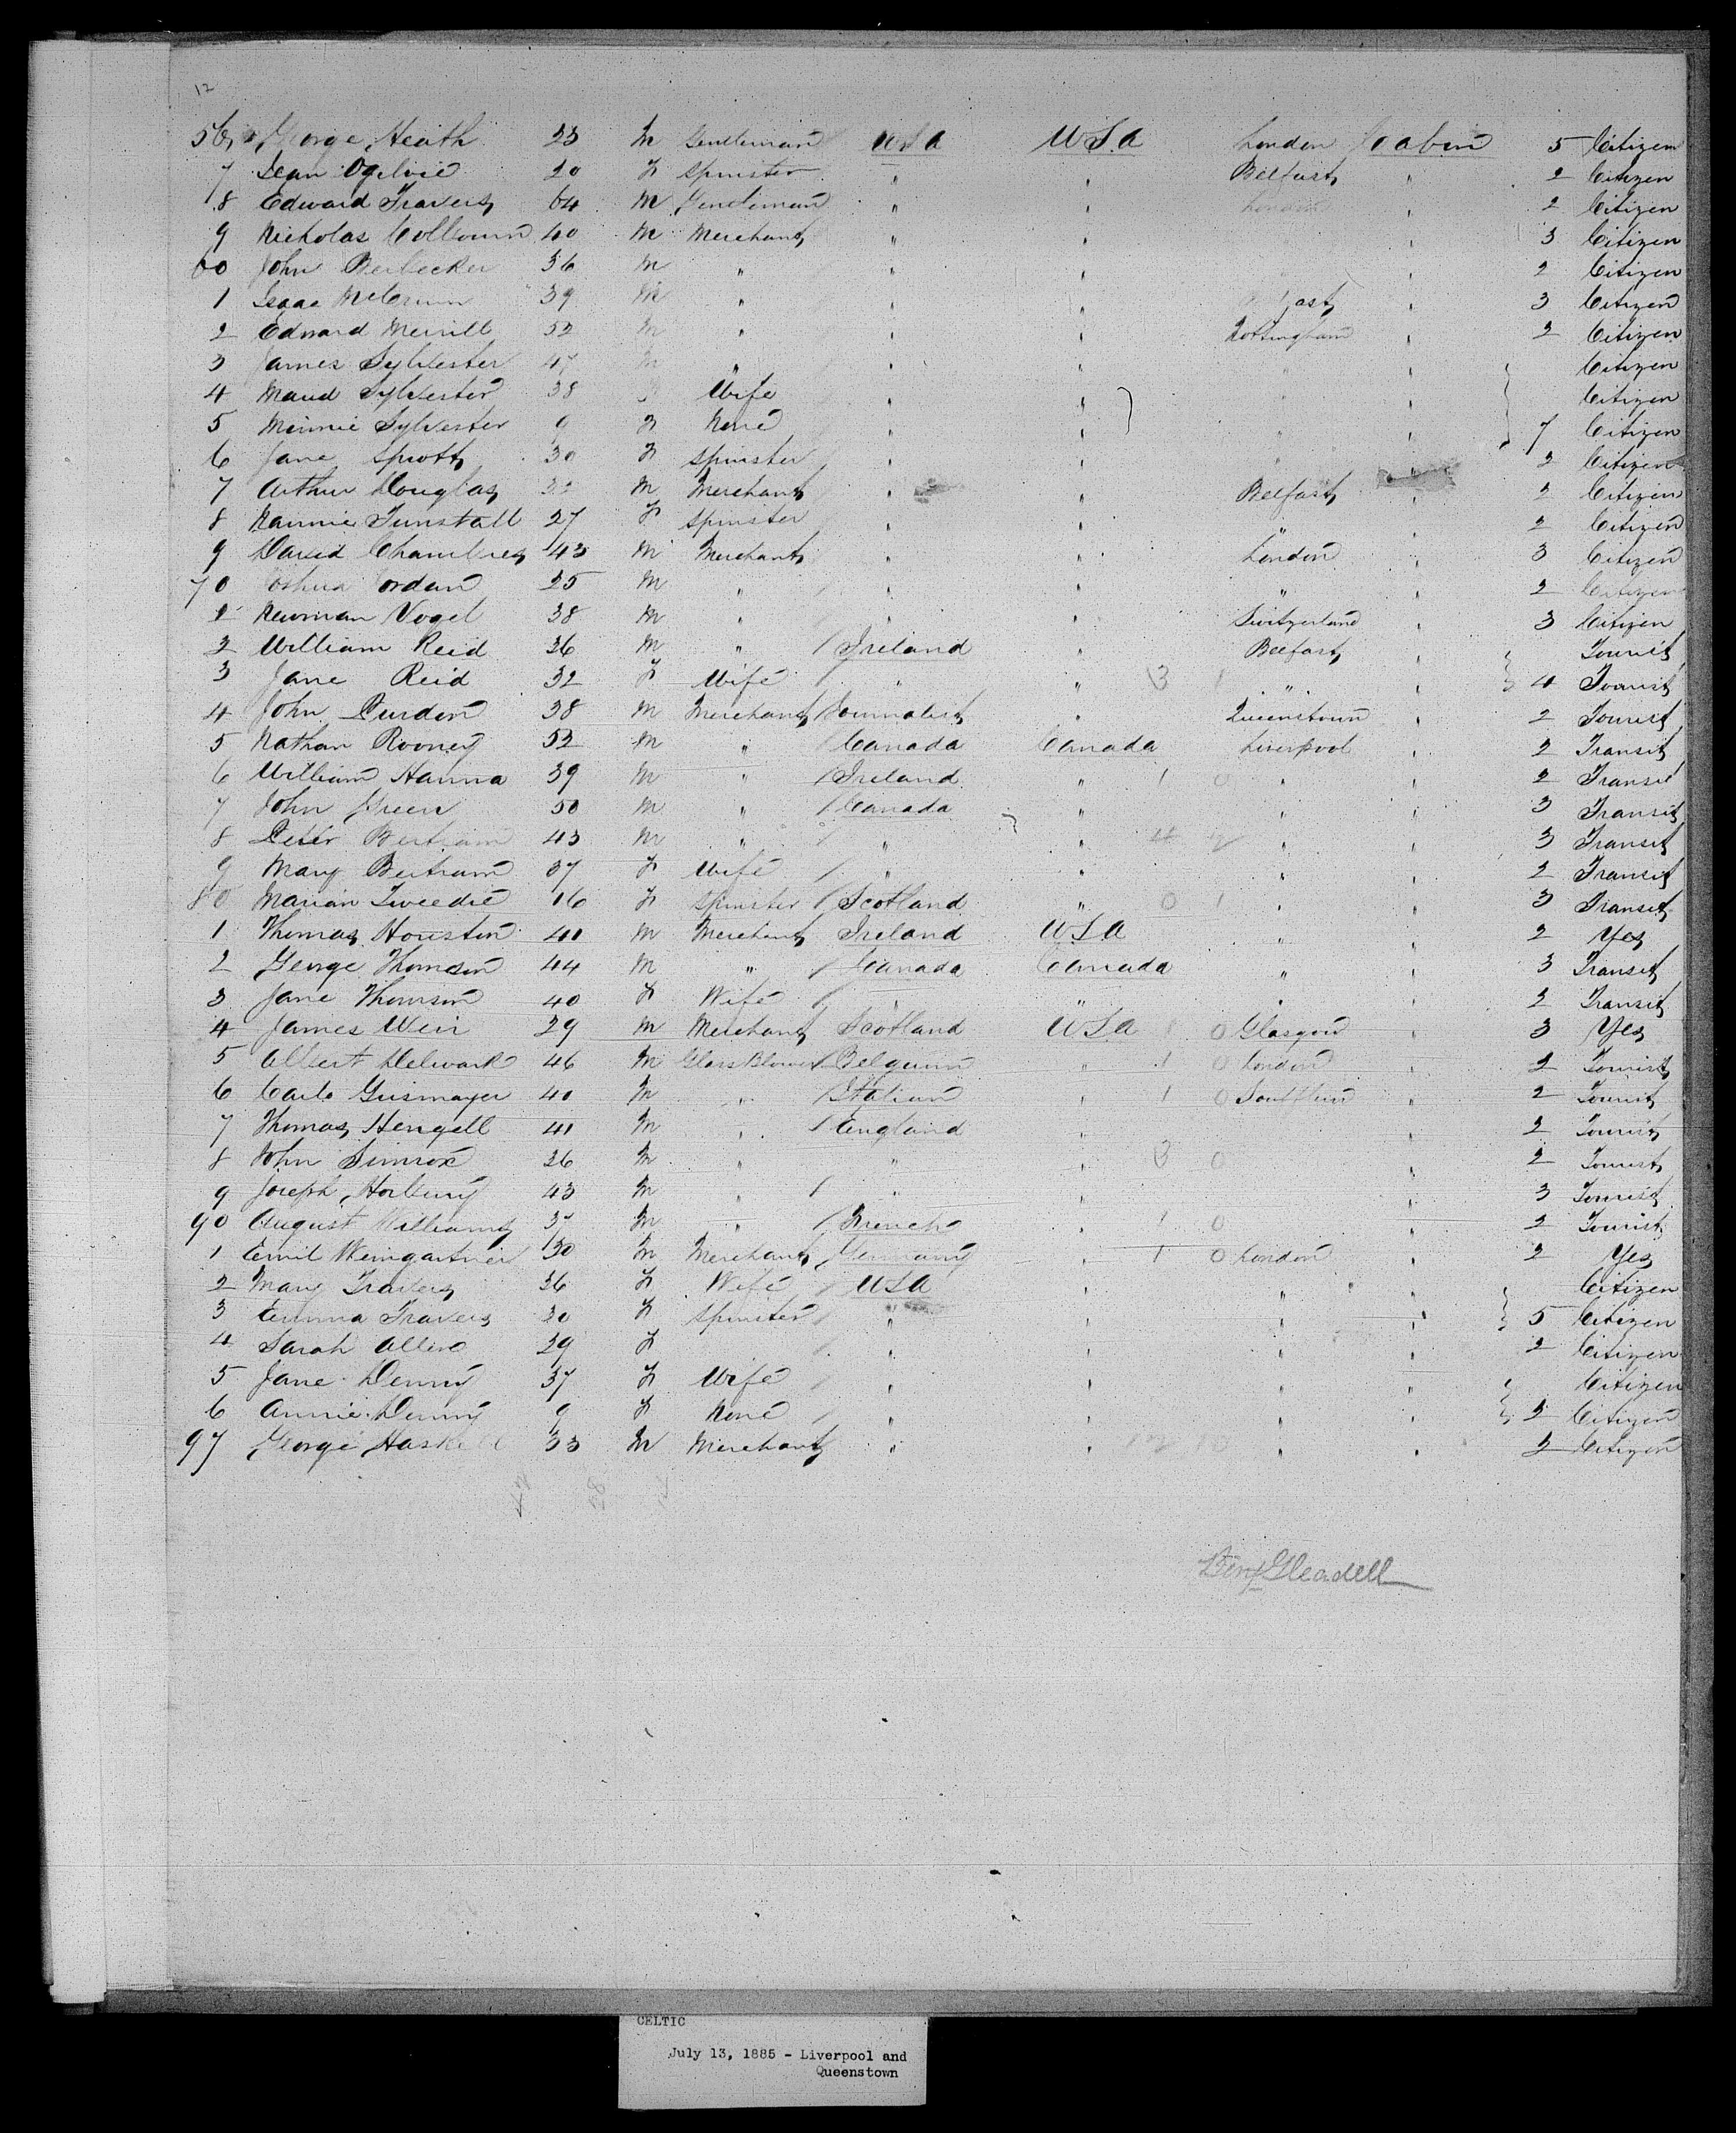 12
56 George Heath 23 M Gentleman USA USA London Cabin 5 Citizen
7 Jean Ogilvie 20 F Spinster " " Belfast " 2 Citizen
8 Edward Travers 64 M Gentleman " " London " 2 Citizen
9 Nicholas 40 M Merchant " " " 3 Citizen
60 John 36 M " " " " 2 Citizen
1 Isaac 39 M " " " " 3 Citizen
2 Edward Merrill 52 M " " " Nottingham " 2 Citizen
3 James Sylvester 47 M " " " " " Citizen
4 Maud Sylvester 38 Wife " " " Citizen
5 Minnie Sylvester 9 F None " " " " 7 Citizen
6 Jane Sprott 30 F Spinster " " " 2 Citizen
7 Arthur Douglas M Merchant " " Belfast " 2 Citizen
8 Nannie Tunstall 27 F Spinster " " " " 2 Citizen
9 David Chambres 43 M Merchant " " London " 3 Citizen
70 Joshua Jordan 25 M " " " " " 2 Citizen
1 Newman Vogel 38 M " " " Switzerland " 3 Citizen
2 William Reid 36 M " Ireland " Belfast " Tourist
3 Jane Reid 32 F Wife " " 3 1 " " 4 Tourist
4 John Purdon 38 M Merchant Journalist " Queenstown " 2 Tourist
5 Nathan Rooney 52 M " Canada Canada Liverpool " 2 Transit
6 William Hanna 39 M " Ireland " 1 0 " " 2 Transit
7 John Green 50 M " Canada " " " 3 Transit
8 Peter Bertram 43 M " " " 4 2 " " 3 Transit
9 Mary Bertram 37 F Wife " " " " 2 Transit
80 Marian Tweedie 16 F Spinster Scotland " 0 1 " " 3 Transit
1 Thomas Houston 40 M Merchant Ireland USA " " 2 Yes
2 George Thomson 44 M " Canada Canada " " 3 Transit
3 Jane Thomson 40 F Wife " " " " 2 Transit
4 James Weir 29 M Merchant Scotland USA 1 0 Glasgow " 3 Yes
5 Albert Delwark 46 M Glass Blower Belguim " 1 0 London " 2 Tourist
6 Carlo Geismayer 40 M " Italian " 1 0 " 2 Tourist
7 Thomas Hengell 41 M " England " 2 Tourist
8 John Simrox 26 M " " " 3 0 " 2 Tourist
9 Joseph Horbury 43 M " " " 3 Tourist
90 August Williams 37 M " French " 1 0 " 2 Tourist
1 Emil Weingartner 30 M Merchant Germany " 1 0 London " 2 Yes
2 Mary Travers 36 F Wife USA " " " Citizen
3 Emma Travers 20 F Spinster " " " " 5 Citizen
4 Sarah 29 F " " " " 2 Citizen
5 Jane Denny 37 F Wife " " " " Citizen
6 Annie Denny 9 F None " " " " 2 Citizen
97 George Haskell 33 M Merchant " " " " 2 Citizen
Benj Gleadell
CELTIC
July 13, 1885 - Liverpool and
Queenstown